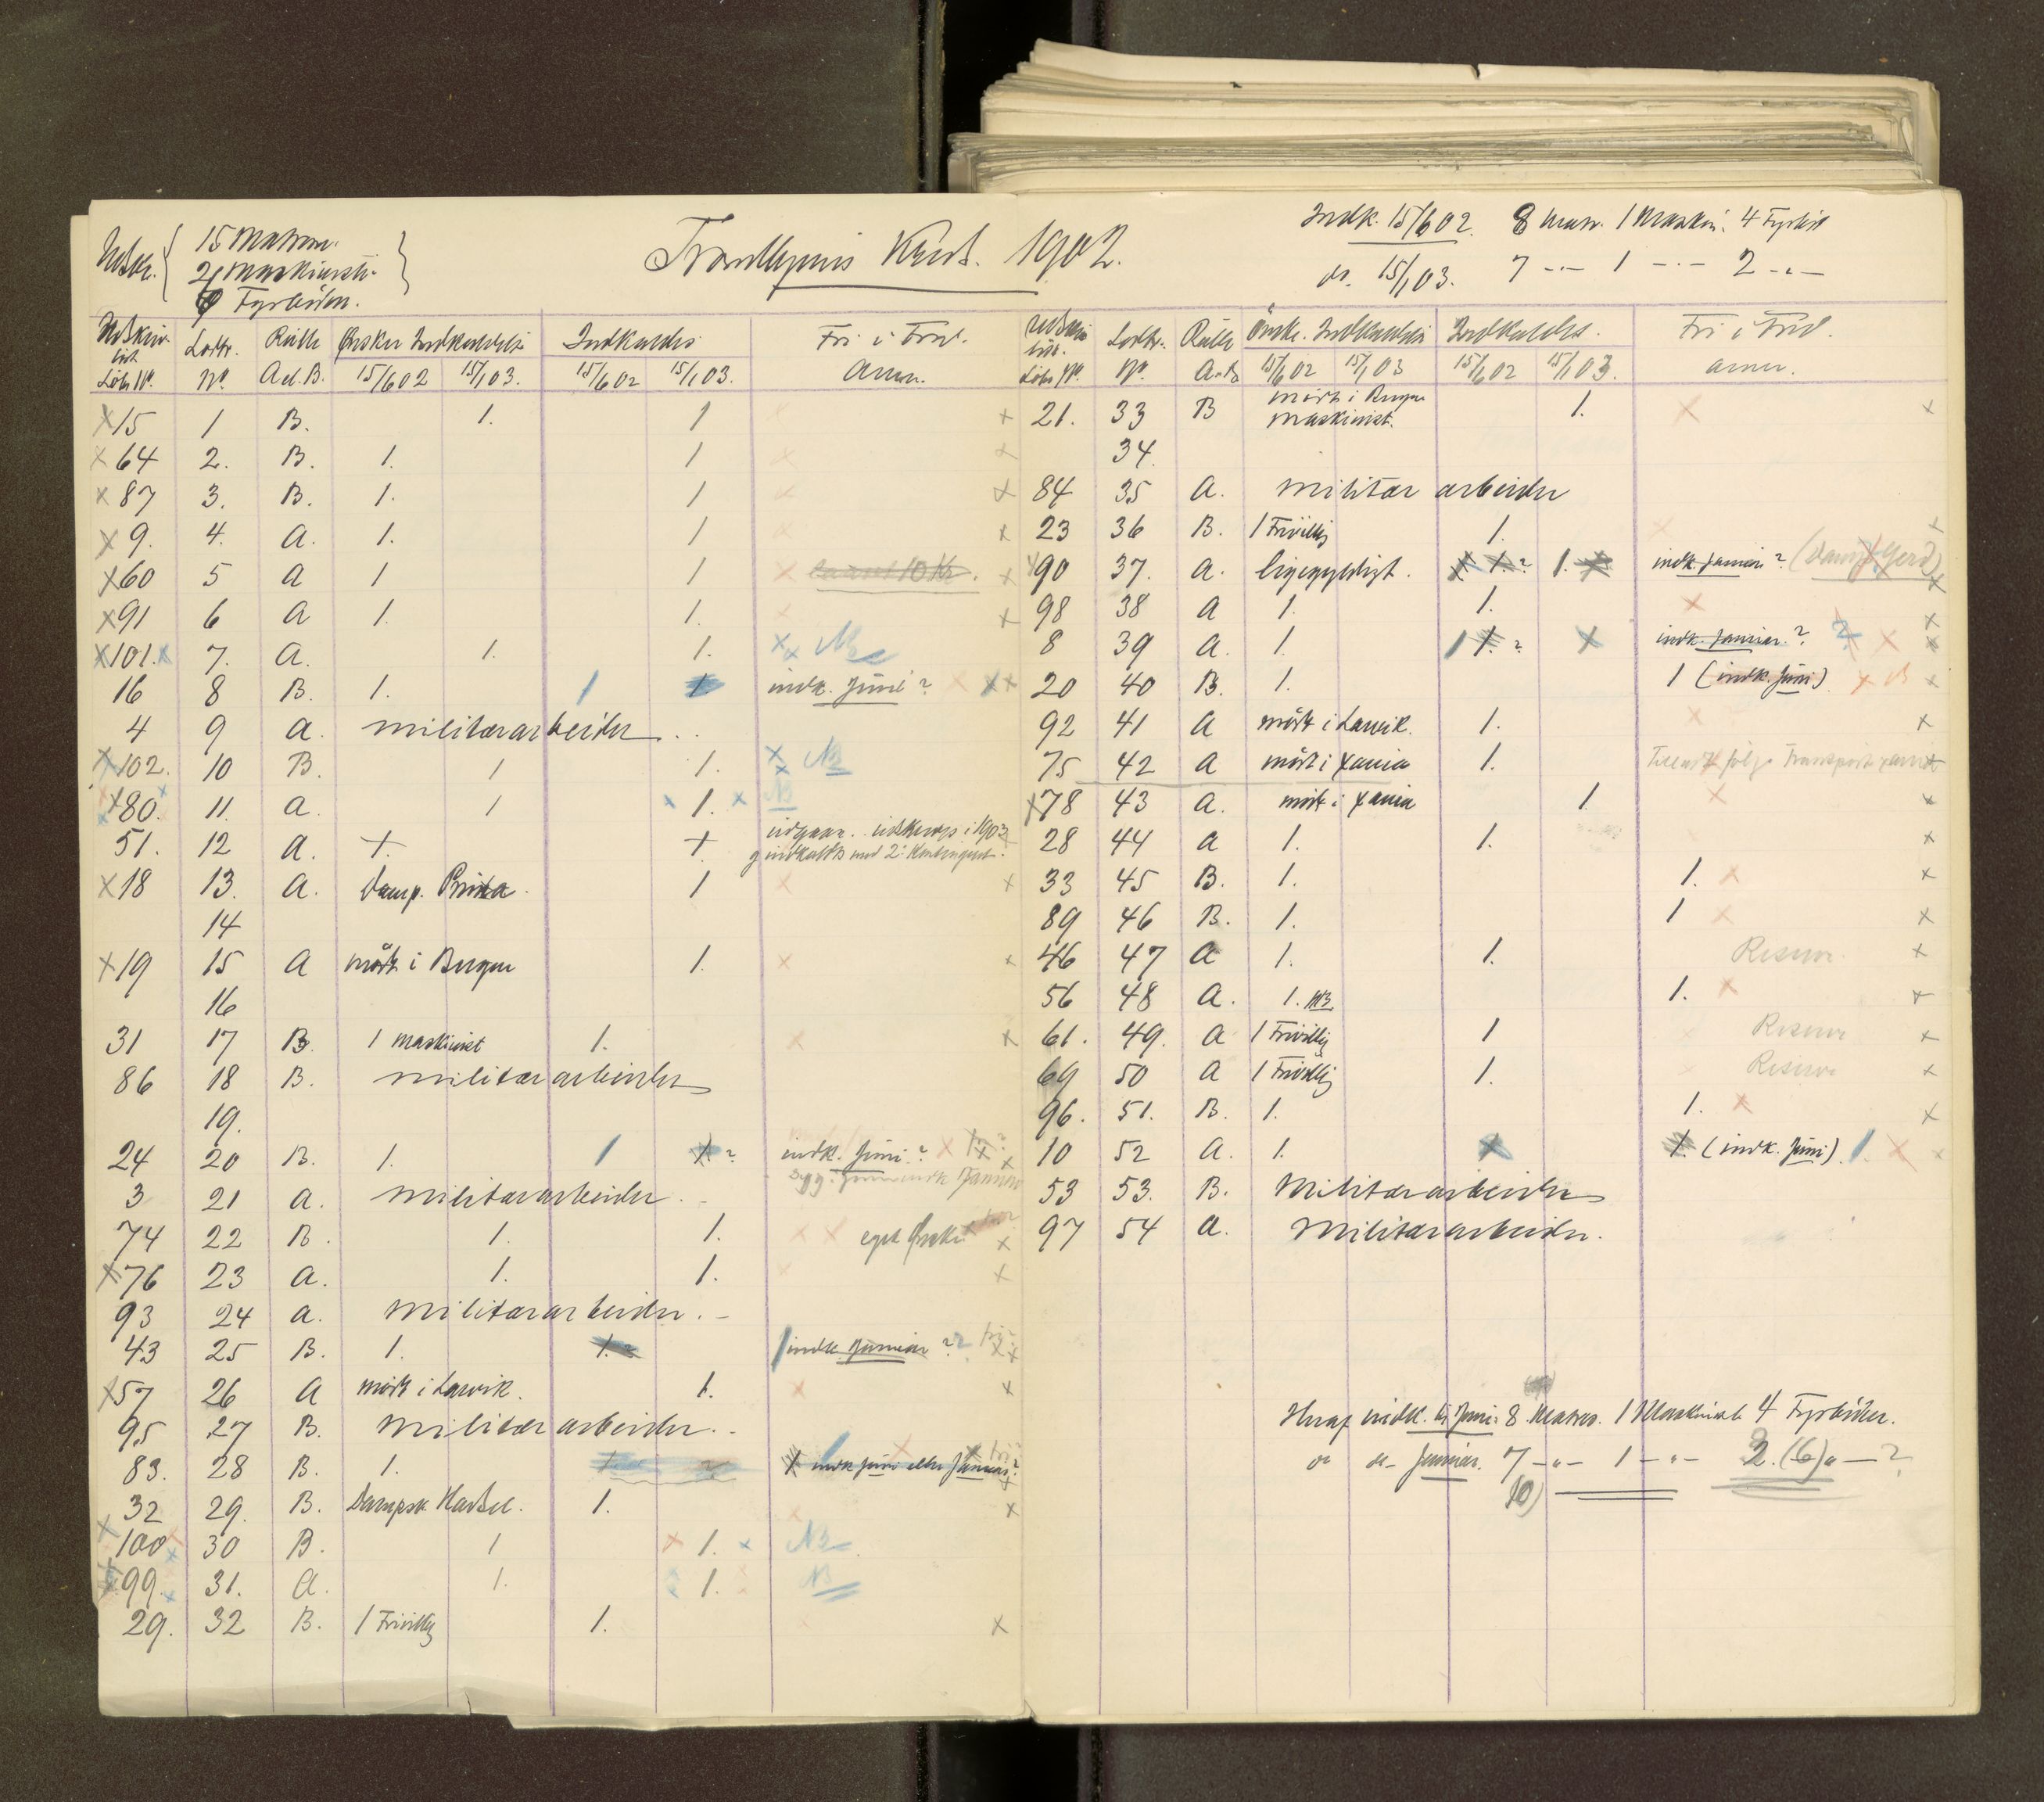 Udskr. { 15 Matros.
2 Maskinist.
Fyrbödere. }
Trondhjems Kreds. 1902.
Indk. 15/6 02. 8 Matr. 1 Maskin. 4 Fyrböd
do. 15/1 03. 7 -"- 1 -"- 2 -"-
Udskriv. list Löbe No. Lodtr. No. Rulle A el. B. Ønsker Indkaldelse 15/6 02 15/1 03. Indkaldes 15/6 02 15/1 03. Fri i Fred. Anm.
x 15 1 B. 1. 1
x 64 2. B. 1. 1 x
x 87 3. B. 1. 1 x
x 9. 4. A. 1. 1
x 60 5 A 1 1 x 10 Kr.
x 91 6 A 1. 1. x
x 101. x 7. A. 1. 1. x x NB
16 8 B. 1. 1 1 indk. Juni? x x x
4 9 A. militærarbeider
x 102. 10 B. 1 1. x x NB
x 80. 11. A. 1 1. x NB
51. 12 A. + + udskrives i 1903 indkaldes med 2. Kontingent.
x 18 13. A. Damp. 1 x
14
x 19 15 A mödt i Bergen 1. x
16
31 17 B. 1 Maskinist 1. x
86 18 B. militær arbeider
19.
24 20 B. 1. 1 1. ? indk. Juni? x
3 21 A. militærarbeider
74 22 B. 1. 1. x x eget Ønske
x 76 23 A. 1. 1. x
93 24 A. militærarbeider
43 25 B. 1. 1. 1 indk. Januar??
x 57 26 A mödt i Larvik. 1. x
95 27 B. militær arbeider
83. 28 B. 1. indk Juni eller Januar?
32 29. B. Dampsk. 1.
x 100 30 B. 1 x 1. x NB
x 99 31. A. 1. 1. NB
29. 32 B. 1 Frivillig 1.
Udskriv list. Löbe No. Lodtr. No. Rulle A-B Önsk. Indkaldelse 15/6 02 15/1 03 Indkaldes. 15/6 02 15/1 03. Fri i Fred. Anm.
x 21. 33 B mödt i Bergen Maskinist. 1. x
x 34.
x 84 35 A. militær arbeider
x 23 36 B. 1 Frivillig 1. x
x 90 37. A. ligegyldigt. ? 1. indk. Januar? (Damp
x 98 38 A 1. 1. x
8 39 A. 1. 1 1. ? x indk. Januar? ? x
20 40 B. 1. 1 (indk. Juni) x
92 41 A mödt i Larvik. 1. x
75 42 A mödt i Xania 1.
x 78 43 A. mödt i Xania 1 x
28 44 A 1. 1.
x 33 45 B. 1. 1. x
89 46 B. 1. 1 x
x 46 47 A 1. 1. Reserve
56 48 A. 1. NB. 1. x
x 61. 49. A 1 Frivillig 1 Reserve
69 50 A 1 Frivillig 1. Reserve
96. 51. B. 1. 1. x
10 52 A. 1. x 1. (indk. Juni) 1. x
53 53. B. Militærarbeider
97 54 A. Militærarbeider.
indk. til Juni: 8 Matros. 1 Maskinist 4 Fyrböder.
do do- Januar. 7 -"- 1 -"- 2. (6) " - ?
10)